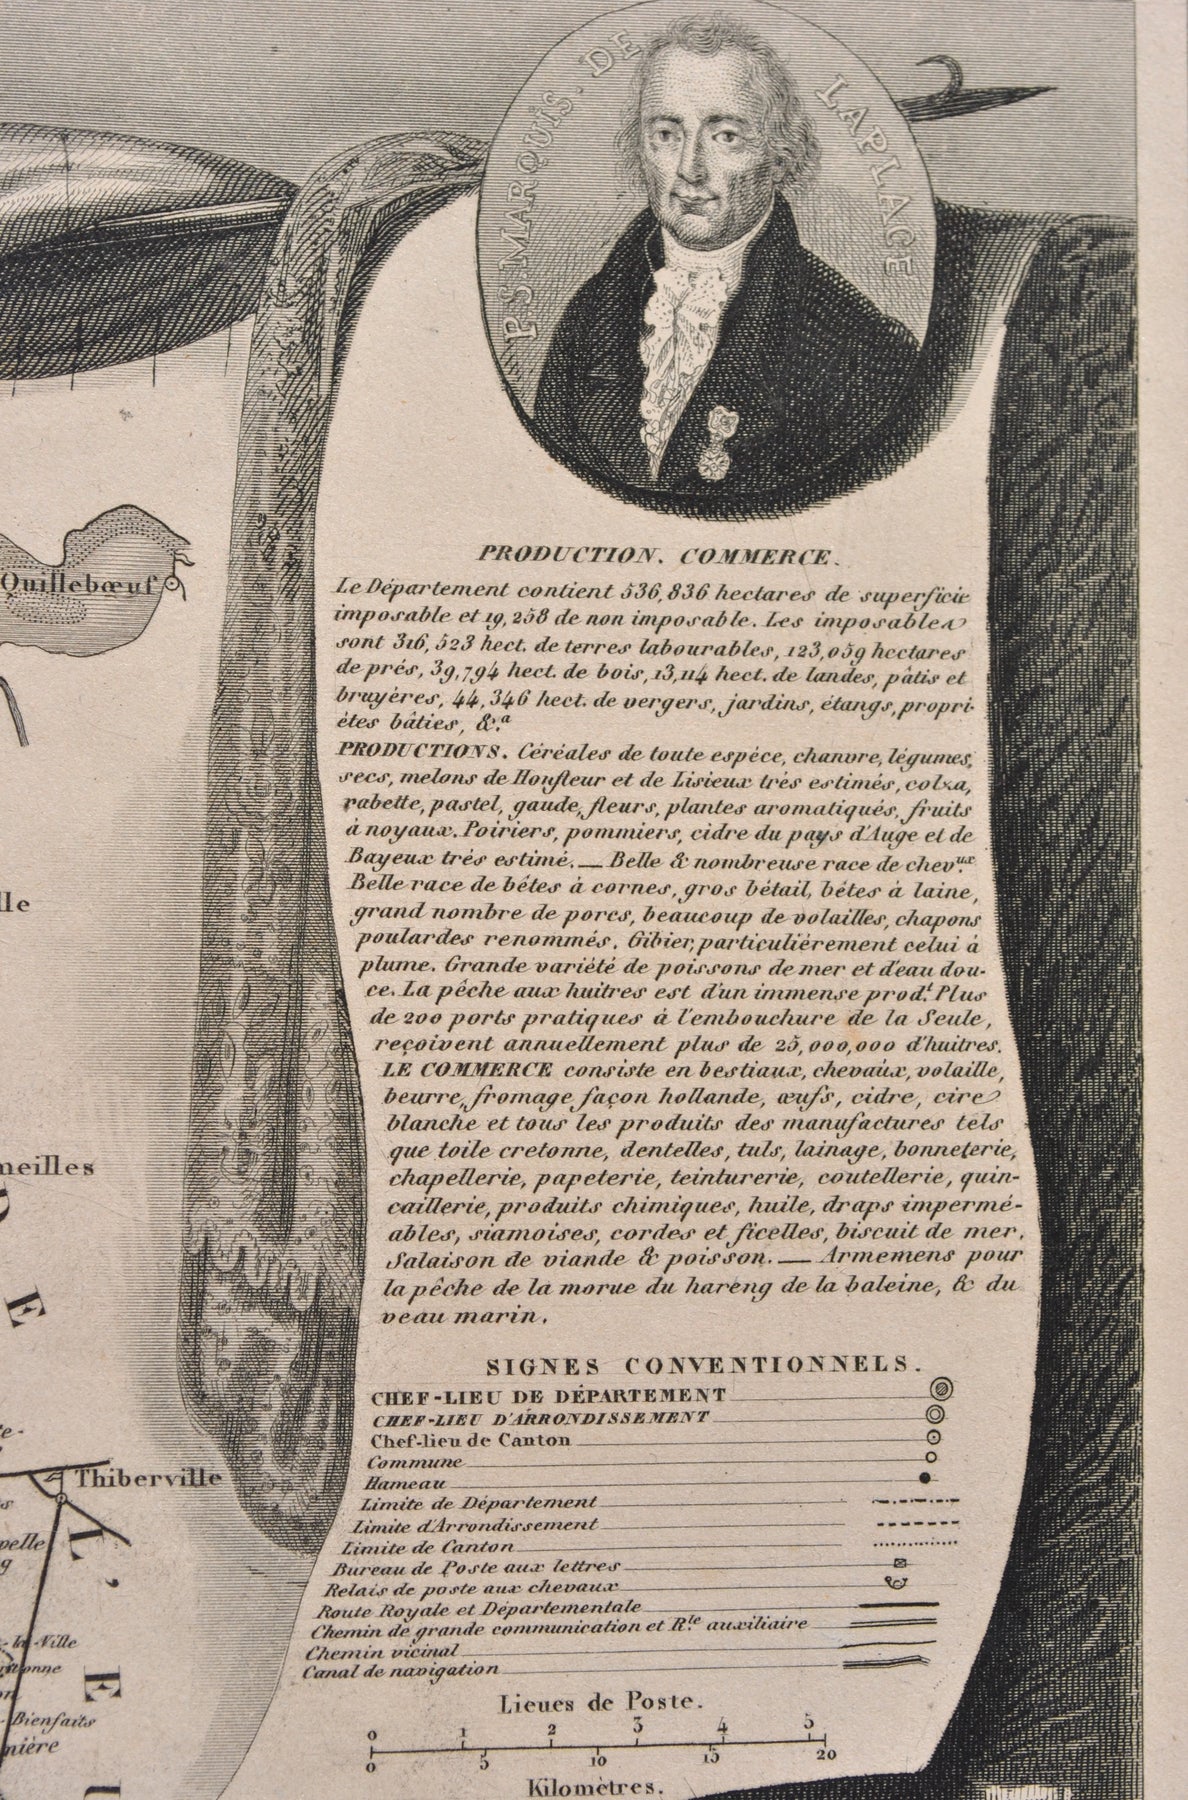 P. S. MARQUIS. DE LAPLACE
Quillebœuf
PRODUCTION. COMMERCE.
Le Département contient 536,836 hectares de superficie
imposable et 19,258 de non imposable. Les imposables
sont 316,523 hect. de terres labourables, 123,059 hectares
de prés, 39,794 hect. de bois, 13,114 hect. de landes, pâtis et
bruyères, 44,346 hect. de vergers, jardins, étangs, propri-
étes bâties, &.a
PRODUCTIONS. Céréales de toute espéce, chanvre, légumes,
secs, melons de Honfleur et de Lisieux trés estimés, colza,
rabette, pastel, gaude, fleurs, plantes aromatiqués, fruits
à noyaux. Poiriers, pommiers, cidre du pays d'Auge et de
Bayeux trés estimé. — Belle & nombreuse race de chev.ux
Belle race de bêtes à cornes, gros bétail, bêtes à laine,
grand nombre de porcs, beaucoup de volailles, chapons
poulardes renommés. Gibier, particuliérement celui à
plume. Grande variété de poissons de mer et d'eau dou-
ce. La pêche aux huitres est d'un immense prod.t Plus
de 200 ports pratiques à l'embouchure de la Seule,
reçoivent annuellement plus de 25,000,000 d'huitres.
LE COMMERCE consiste en bestiaux, chevaux, volaille,
beurre, fromage façon hollande, œufs, cidre, cire
blanche et tous les produits des manufactures tels
que toile cretonne, dentelles, tuls, lainage, bonneterie,
chapellerie, papeterie, teinturerie, coutellerie, quin-
caillerie, produits chimiques, huile, draps impermé-
ables, siamoises, cordes et ficelles, biscuit de mer.
Salaison de viande & poisson. — Armemens pour
la pêche de la morue du hareng de la baleine, & du
veau marin.
lle
meilles
D E L'EU
Thiberville
pelle
la-Ville
Bienfaits
nière
SIGNES CONVENTIONNELS.
CHEF-LIEU DE DÉPARTEMENT
CHEF-LIEU D'ARRONDISSEMENT
Chef-lieu de Canton
Commune
Hameau
Limite de Département
Limite d'Arrondissement
Limite de Canton
Bureau de Poste aux lettres
Relais de poste aux chevaux
Route Royale et Départementale
Chemin de grande communication et R.te auxiliaire
Chemin vicinal
Canal de navigation
Lieues de Poste.
0 1 2 3 4 5
0 5 10 15 20
Kilomètres.